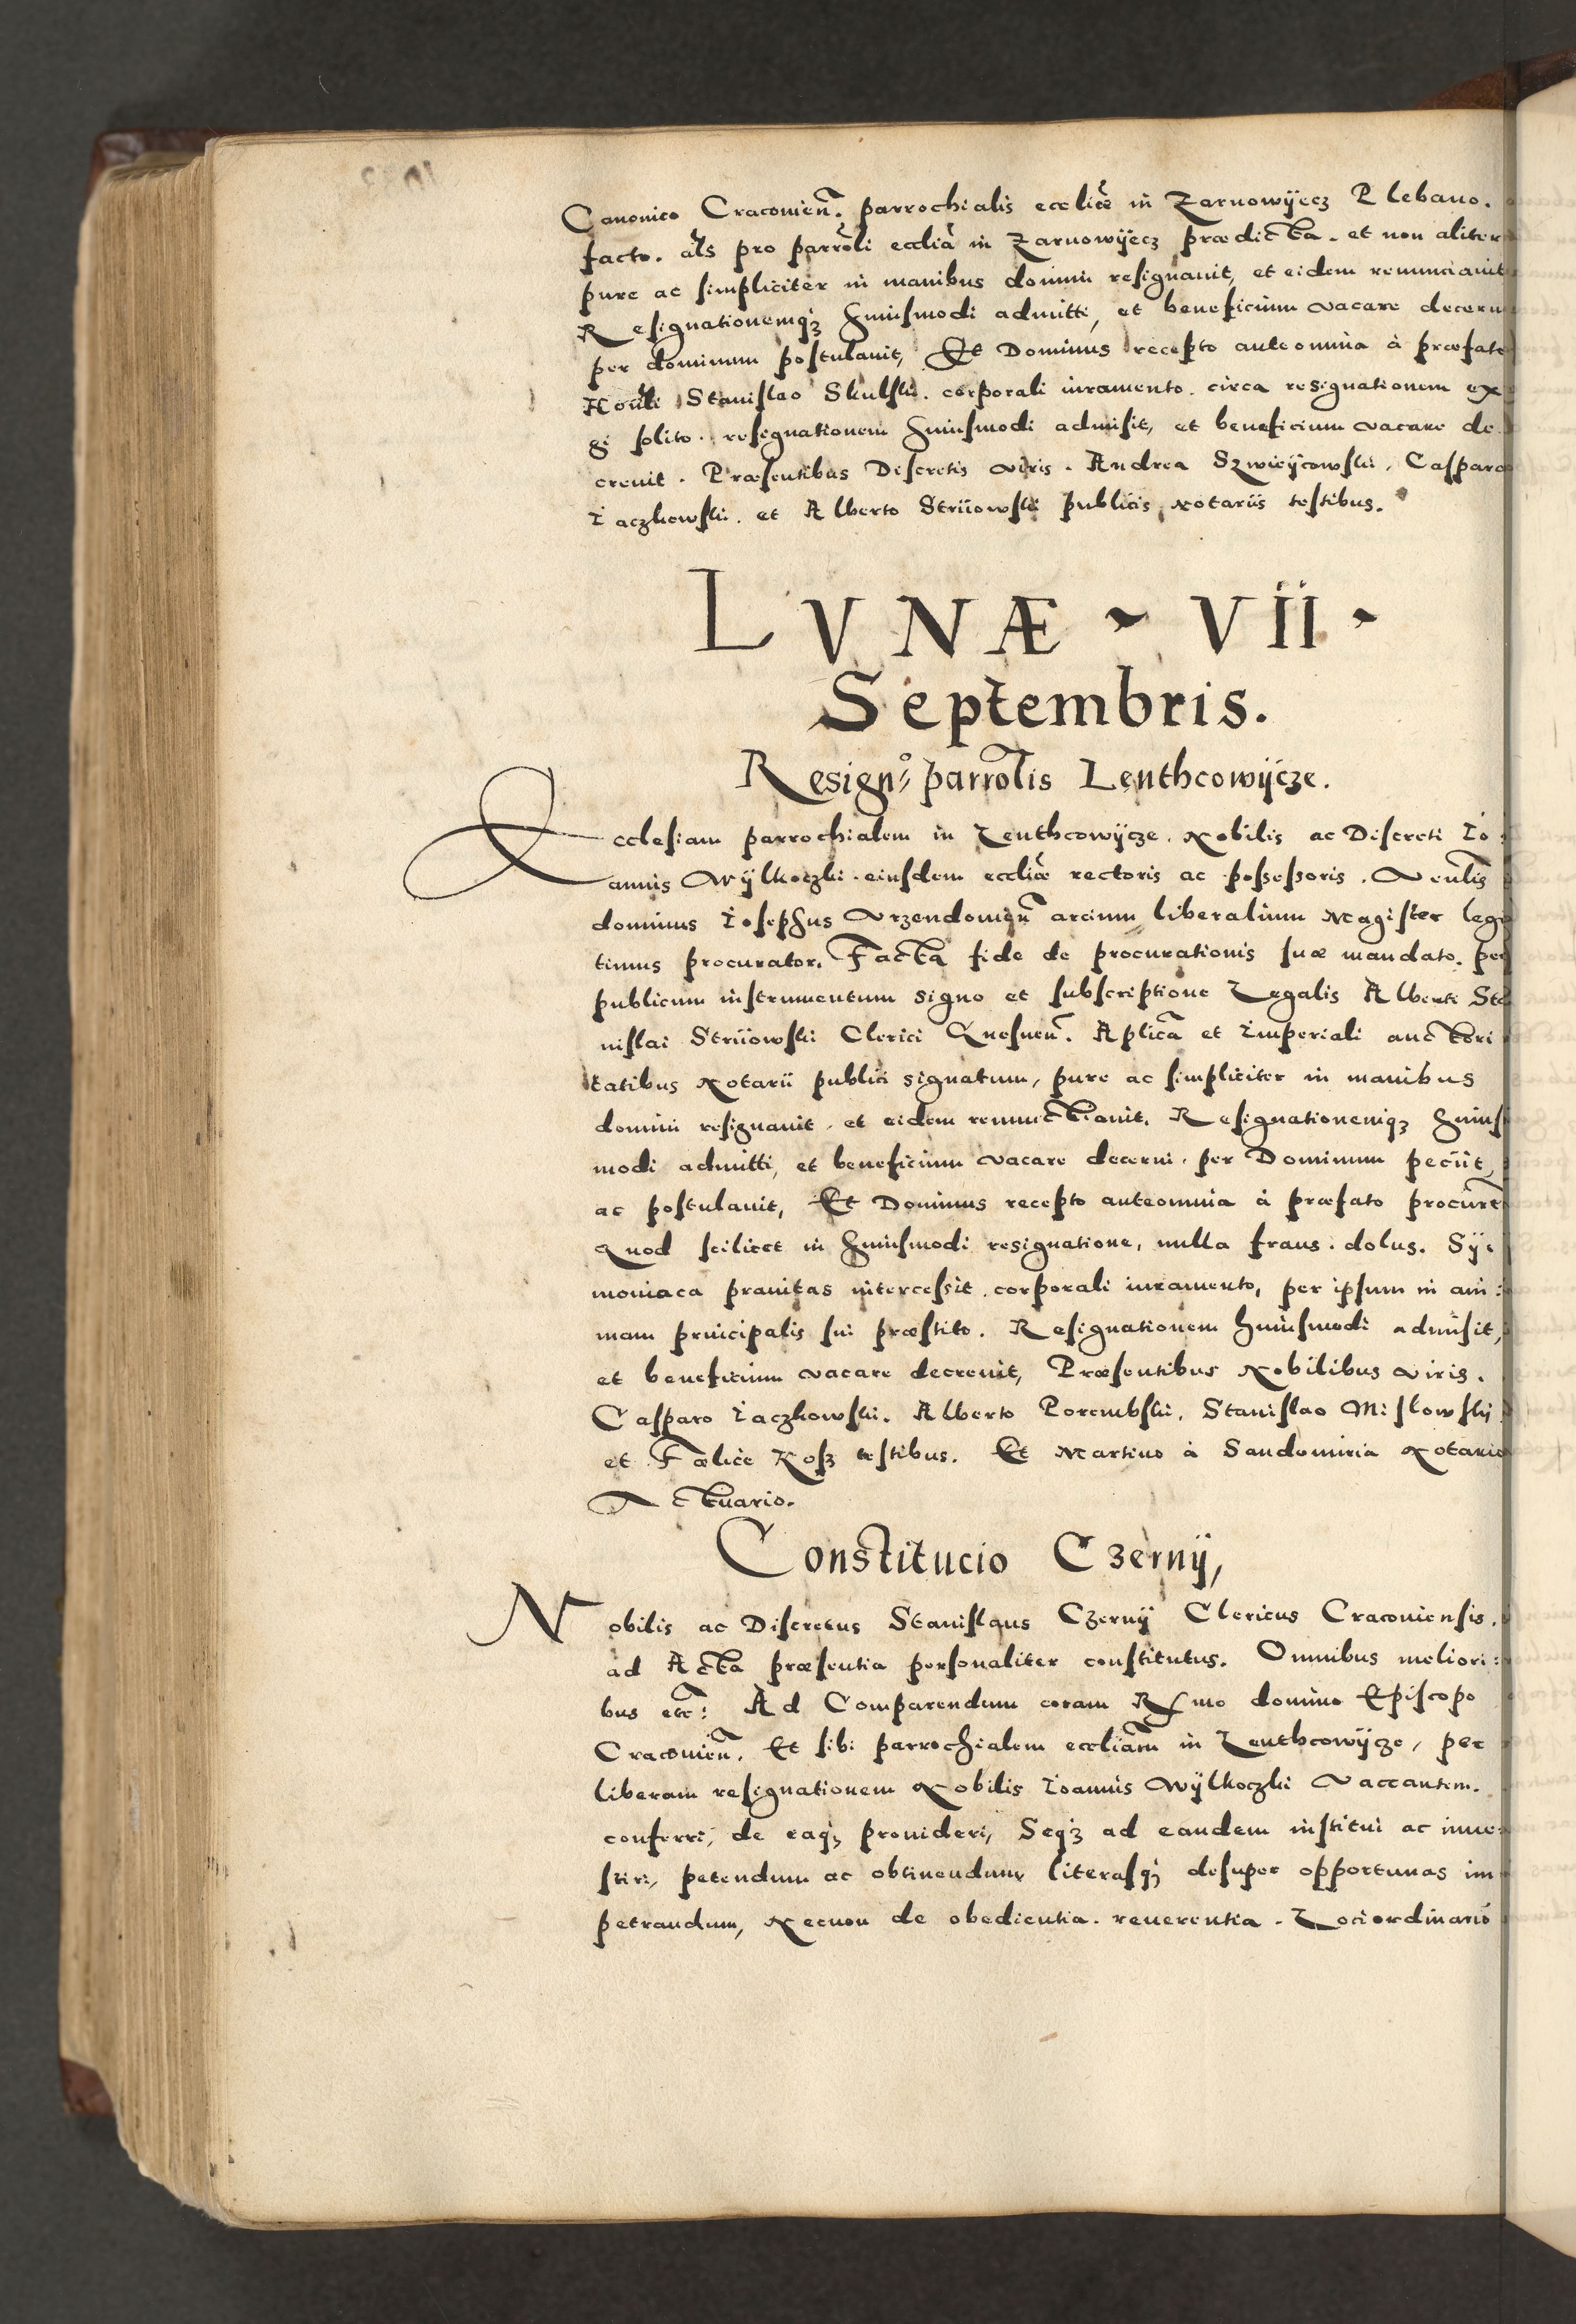 Canonico Craconien̄. parrochialis eccliæ in Zarnowÿecz Plebano.
facto. als pro parroli ecclia in Zarnowÿecz prædicta. et non aliter
pure ac simpliciter in manibus domini resignauit, et eidem renunciauit
Resignationemqȝ huiusmodi admitti, et beneficium vacare decern
per dominum postulauit, Et Dominus recepto ante omnia à præfato
Stanislao Skulski. corporali iuramento. circa resignationem exi
gi solito. resignationem huiusmodi admisit, et beneficium vacare de
creuit. Præsentibus Discretis viris. Andrea Szwieÿcowski, Casparo
Iaczkowski. et Alberto Striiowski publicis notariis testibus.
LVNÆ ~ VII ~
Septembris.
Resign̊ parrolis Lenthcowÿcze.
Ecclesiam parrochialem in Lenthcowÿcze. Nobilis ac Discreti Io:
annis Wÿlkoczki. eiusdem eccliæ rectoris ac possessoris. Venlis
dominus Iosephus Vrzendowien̄ arcium liberalium Magister legi
timus procurator. Facta fide de procurationis suæ mandato. per
publicum instrumentum signo et subscriptione Legalis Alberti Sta
nislai Striiowski Clerici Gnesnen̄. Aplica et Imperiali auctori
tatibus Notarii publici signatum, pure ac simpliciter in manibus
domini resignauit. et eidem renunctiauit. Resignationemqȝ huius
modi admitti, et beneficium vacare decerni. per Dominum peciit
ac postulauit, Et Dominus recepto ante omnia à præfato procure
Quod scilicet in huiusmodi resignatione, nulla fraus. dolus. Sÿ:
moniaca prauitas intercessit. corporali iuramento, per ipsum in ani:
mam principalis sui præstito. Resignationem huiusmodi admisit,
et beneficium vacare decreuit, Præsentibus Nobilibus viris.
Casparo Iaczkowski. Alberto Porembski. Stanislao Mislowskÿ
et Fœlice Rosz testibus. Et Martino à Sandomiria Notario
Actuario.
Constitucio Czernÿ,
Nobilis ac Discretus Stanislaus Czernÿ Clericus Cracouiensis.
ad Acta præsentia personaliter constitutus. Omnibus meliori:
bus etc: Ad Comparendum coram Rmo domino Episcopo
Cracouien̄. Et sibi parrochialem eccliam in Lenthcowÿcze, per
liberam resignationem Nobilis Ioannis Wÿlkoczki Vaccantem.
conferri, de eaqȝ prouideri, Seqȝ ad eandem institui ac inue:
stiri, petendum ac obtinendum literasqȝ desuper opportunas im
petrandum, Necnon de obedientia. reuerentia. Lociordinario